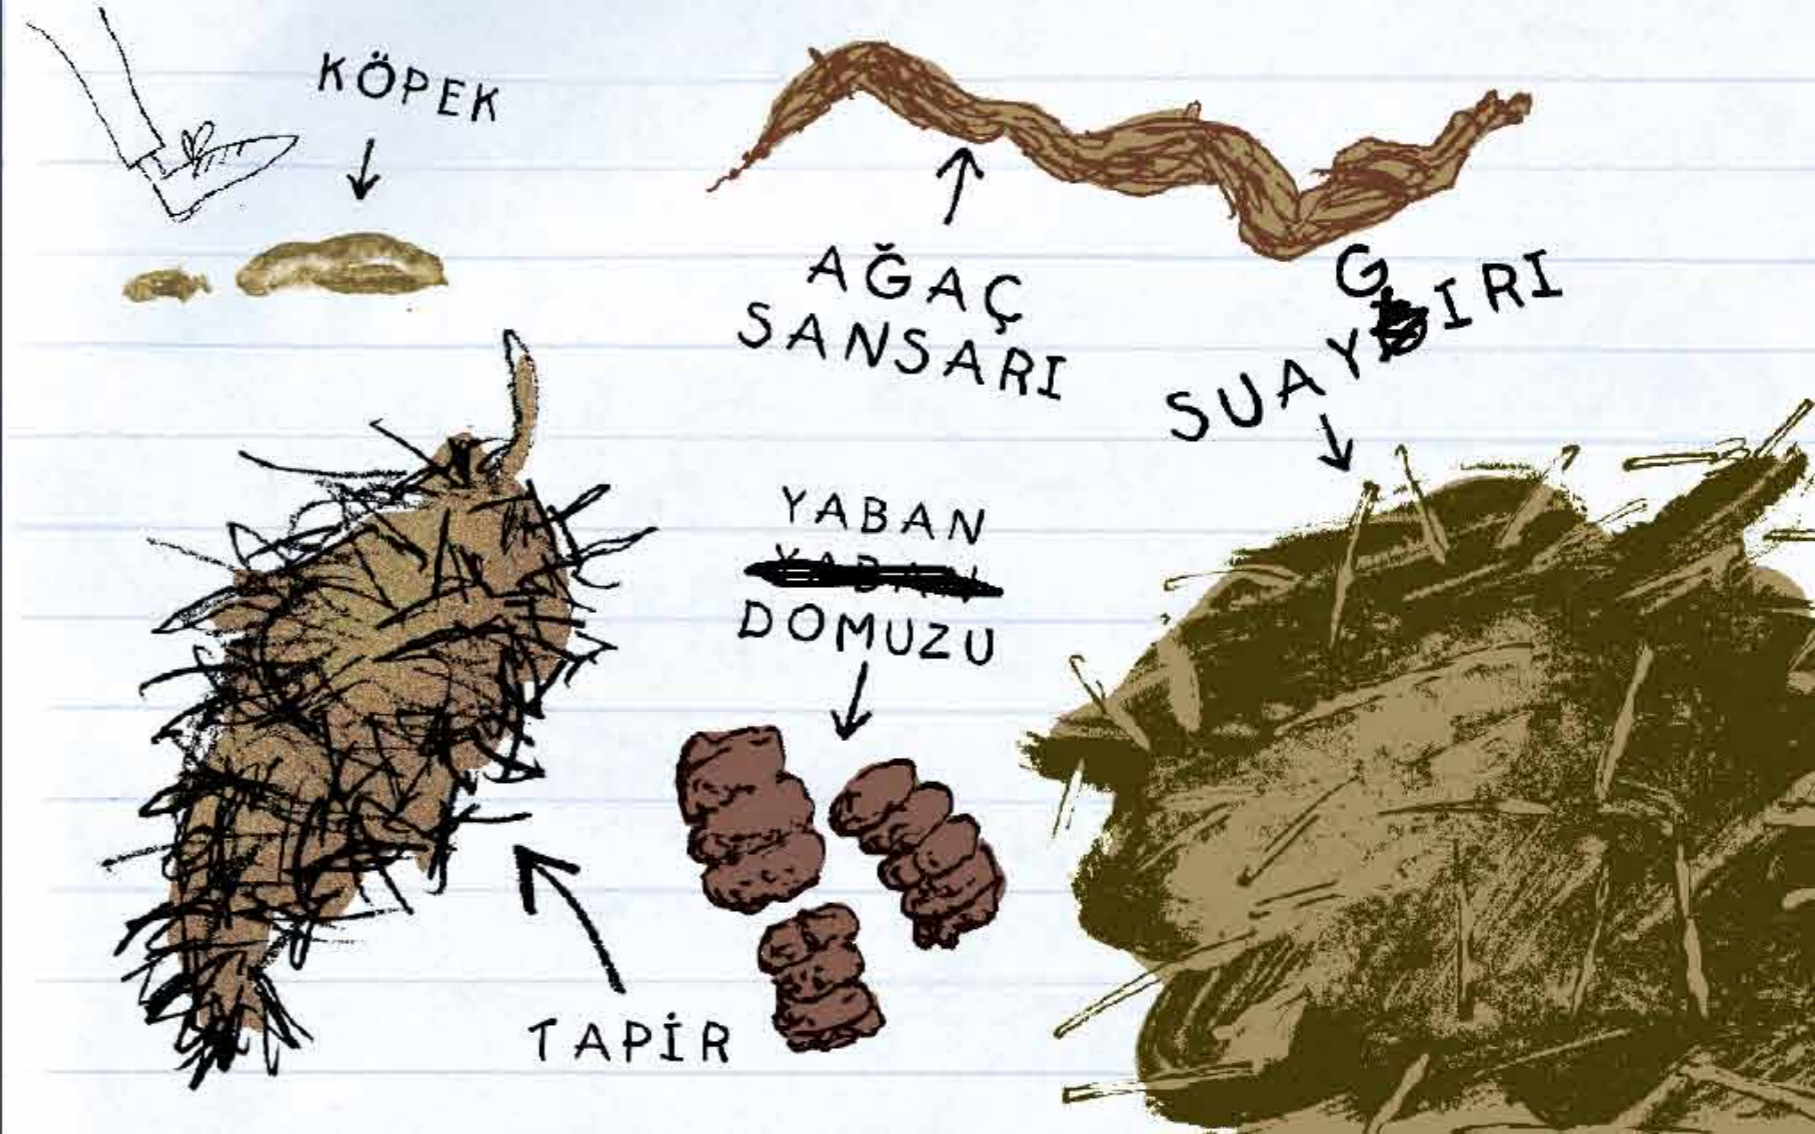 KÖPEK
AĞAÇ
SANSARI
SUAYGIRI
YABAN
YABAN
DOMUZU
TAPİR